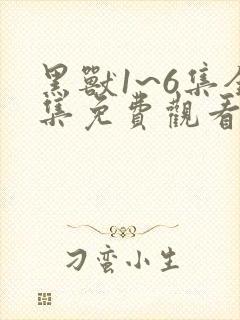 黑獸1~6集全
集免費觀看
刁蛮小生